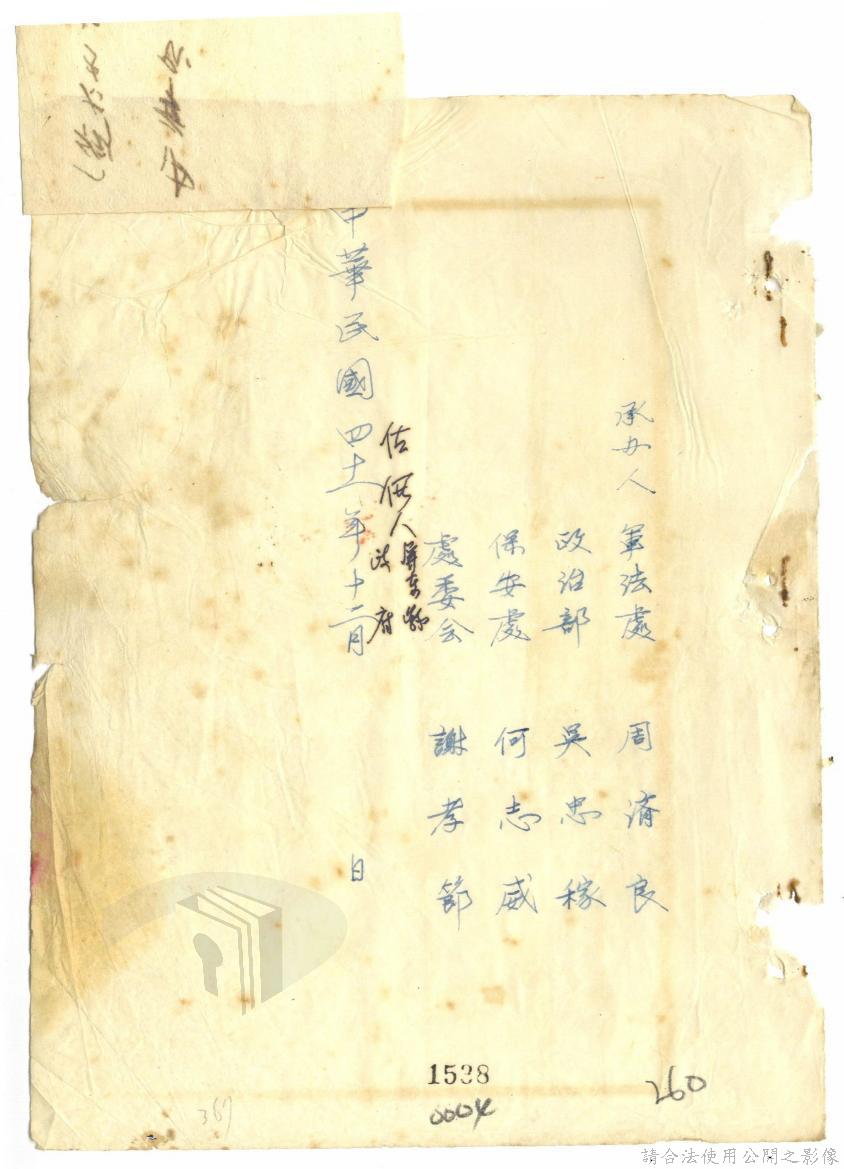 承办人 軍法處 周濟良
政治部 吳忠稼
保安處 何志威
處委会 謝孝節
估價人 屏东縣
政府
中華民國四十一年十二月 日
1538
0004
260
367
請合法使用公開之影像